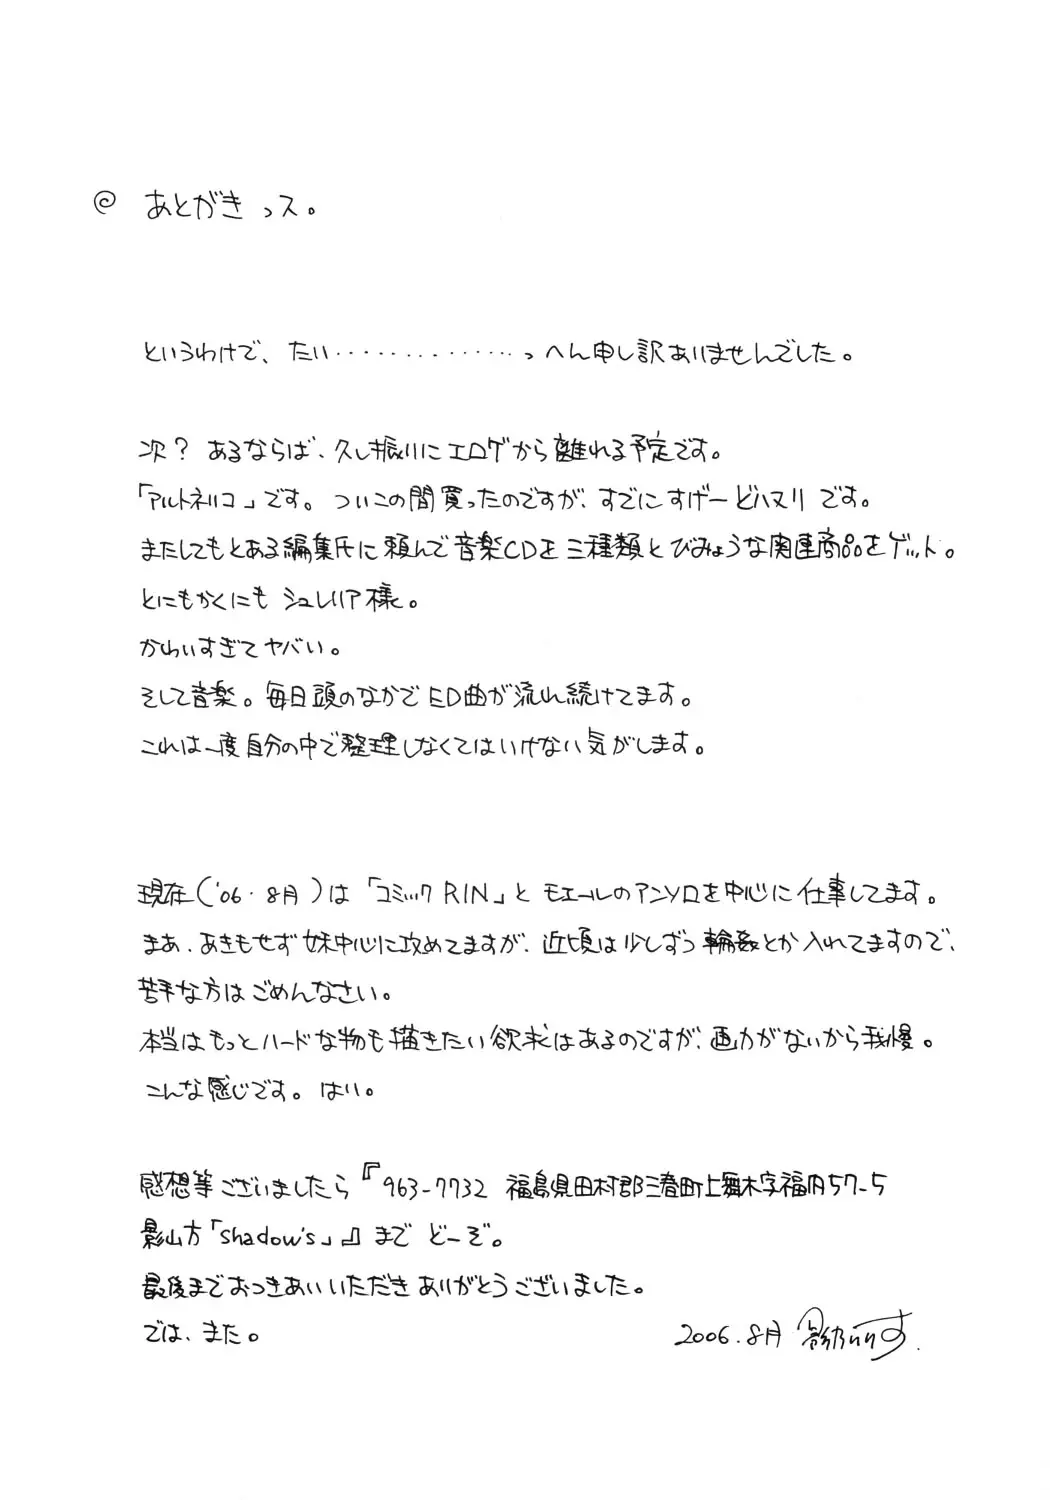 @ あとがきっス。
というわけで、たい‥‥‥‥‥‥‥っへん申し訳ありませんでした。
次？ あるならば、久し振りにエロゲから離れる予定です。
「アルトネリコ」です。ついこの間買ったのですが、すでにすげーどハマリです。
またしてもとある編集氏に頼んで音楽CDを三種類とびみょうな関連商品をゲット。
とにもかくにもシュレリア様。
かわいすぎてヤバい。
そして音楽。毎日頭のなかでED曲が流れ続けてます。
これは一度自分の中で整理しなくてはいけない気がします。
現在('06・8月)は「コミックRIN」とモエールのアンソロを中心に仕事してます。
まあ、あきもせず妹中心に攻めてますが、近頃は少しずつ輪姦とか入れてますので、
苦手な方はごめんなさい。
本当はもっとハードな物も描きたい欲求はあるのですが、画力がないから我慢。
こんな感じです。はい。
感想等ございましたら『963-7732 福島県田村郡三春町上舞木字福内57-5
影山方「shadow's」』までどーぞ。
最後までおつきあいいただきありがとうございました。
では、また。
2006.8月